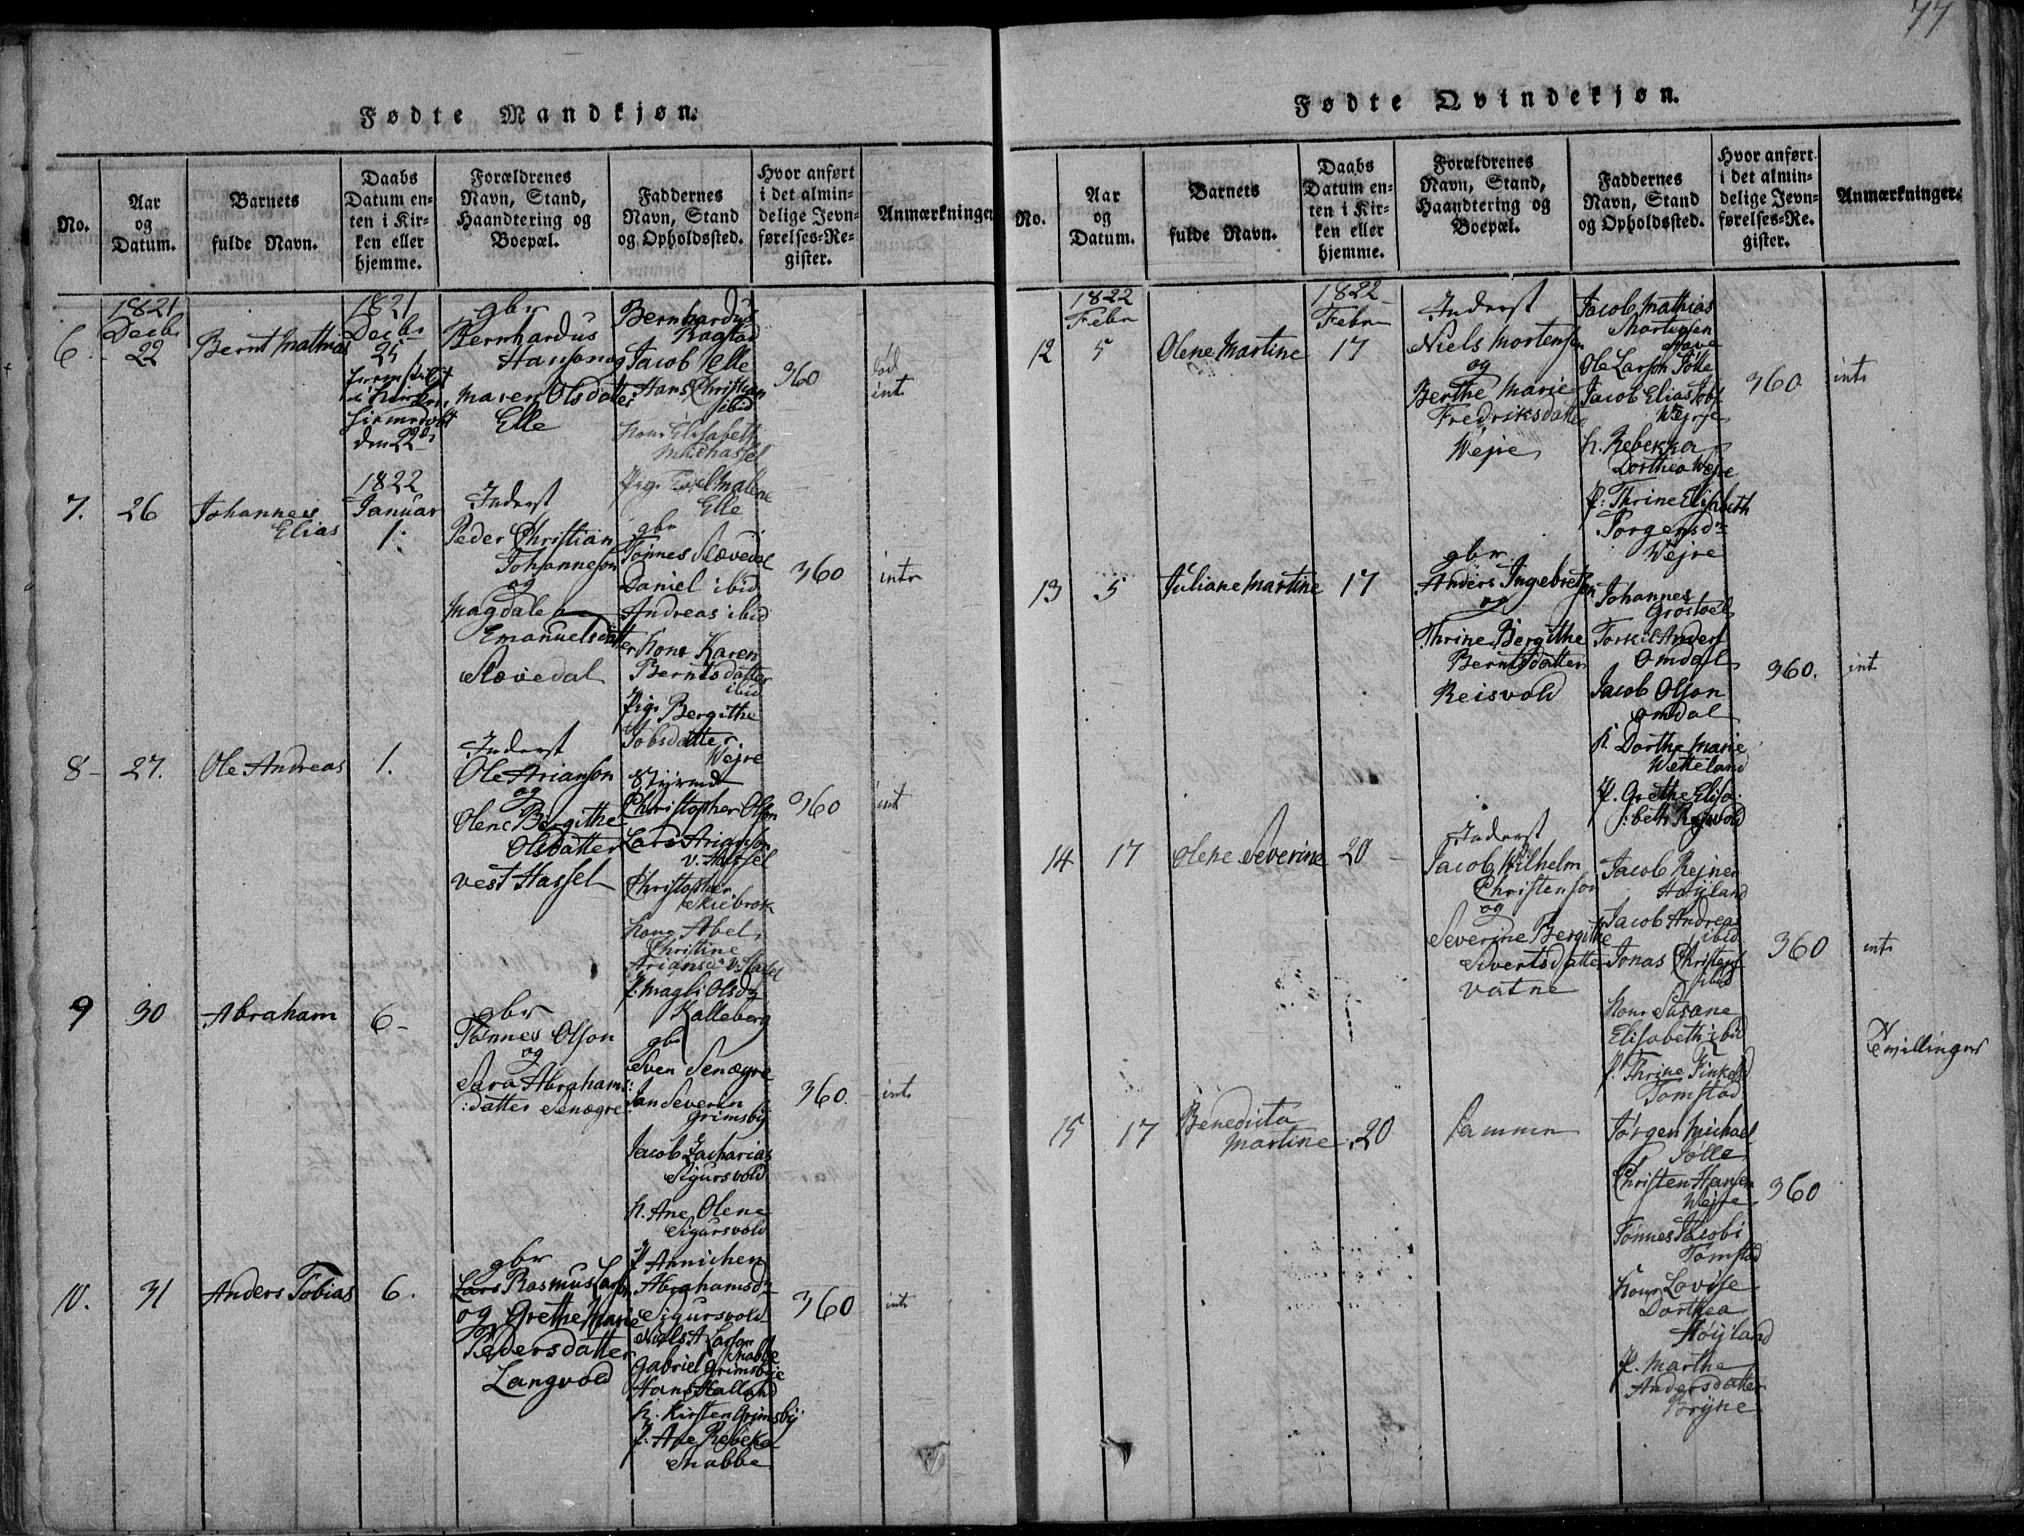 77
Fødte Mandkjøn.
No.
Aar
og
Datum.
Barnets
fulde Navn.
Daabs
Datum en-
ten i Kir-
ken eller
hjemme.
Forældrenes
Navn, Stand,
Haandtering og
Boepæl.
Faddernes
Navn, Stand
og Opholdssted.
Hvor anført
i det almin-
delige Jevn-
førelses-Re-
gister.
Anmærkninger
6
1821
Decbr
22
Bernt Mathias
1821
Decbr
25
den 22
gbr
Bernhardus
Hanson og
Maren Olsdatter
Elle
Bernhardus
Jacob Elle
Hans Christian
ibid
Kone Elisabeth
Midhassel
Malene
Elle
360
int
7.
26
Johannes
Elias
1822
Januar
1.
Inderst
Peder Christian
Johanneson
og
Magdalena
Emanuelsdatter
Slævedal
gbr
Tønnes Slævedal
Daniel ibid
Andreas ibid
Kone Karen
Berntsdatter
ibid
Pig. Bergithe
Jobsdatter
Wejre
360
intr
8
27.
Ole Andreas
1.
Inderst
Ole Arianson
og
Olene Bergithe
Olsdatter
vest Hassel
Christopher Olson
Lars Arianson
v. Hassel
Christopher
Skiebrok
Kone Abel
Christine
Ariansd. v. Hassel
P. Magli Olsdr
Kalleberg
360
int
9
30
Abraham
6
gbr
Tønnes Olson
og
Sara Abrahams:
:datter Senøgre
gbr
Sven Senøgre
Jan Severin
Grimsby
Jacob Zacharias
Sigursvold
k. Ane Olene
Sigursvold
P Annichen
Abrahamsd
Sigursvold
360.
int
10.
31
Anders Tobias
6.
gbr
Lars Rasmus Lars
og Grethe Marie
Pedersdatter
Langvold
Niels A Larson
Snabbe
Gabriel Grimsbye
Hans Halland
k. Kirsten Grimsby
P. Ane Rebeka
Snabbe
360
int
Fødte Qvindekjøn.
No.
Aar
og
Datum.
Barnets
fulde Navn.
Daabs
Datum en-
ten i Kir-
ken eller
hjemme.
Forældrenes
Navn, Stand,
Haandtering og
Boepæl.
Faddernes
Navn, Stand
og Opholdssted.
Hvor anført
i det almin-
delige Jevn-
førelses-Re-
gister.
Anmærkninger.
12
1822
Febr
5
Olene Martine
1822
Febr
17
Inderst
Niels Mortensen
og
Berthe Marie
Fredriksdatter
Wejre
Jacob Mathias
Mortensen
Have
Ole Larson Jölle
Jacob Elias Jobs
Wejre
k. Rebekka
Dorthea Wejre
P. Thrine Elisabeth
Jorgensdr
Wejre
360
int
13
5
Juliane Martine
17
gbr
Anders Ingebretsen
og
Thrine Bergithe
Berntsdatter
Reisvold
Johannes
Grostøl
Torkil Anders
Omdal
Jacob Olson
Omdal
k. Dorthe Marie
Wetteland
P. Grethe Elisa
:beth Rejsvold
360.
int
14
17
Olene Severine
20
Inderst
Jacob Wilhelm
Christenson
og
Severine Bergithe
Sivertsdatter
Vatne
Jacob Rejner
Høyland
Jacob Andreas
ibid
Jonas Christens
ibid
Kone Susane
Elisabeth ibid
P. Thrine Tinkels
Tomstad
360
int
Tvillinger
15
17
Benedicta
Martine
20
Sammen
Jörgen Michael
Jölle
Christen Hansen
Wejre
Tønnes Jacobi
Tomstad
Kone Lovise
Dorthea
Høyland
P. Marthe
Andersdatter
Bryne
360